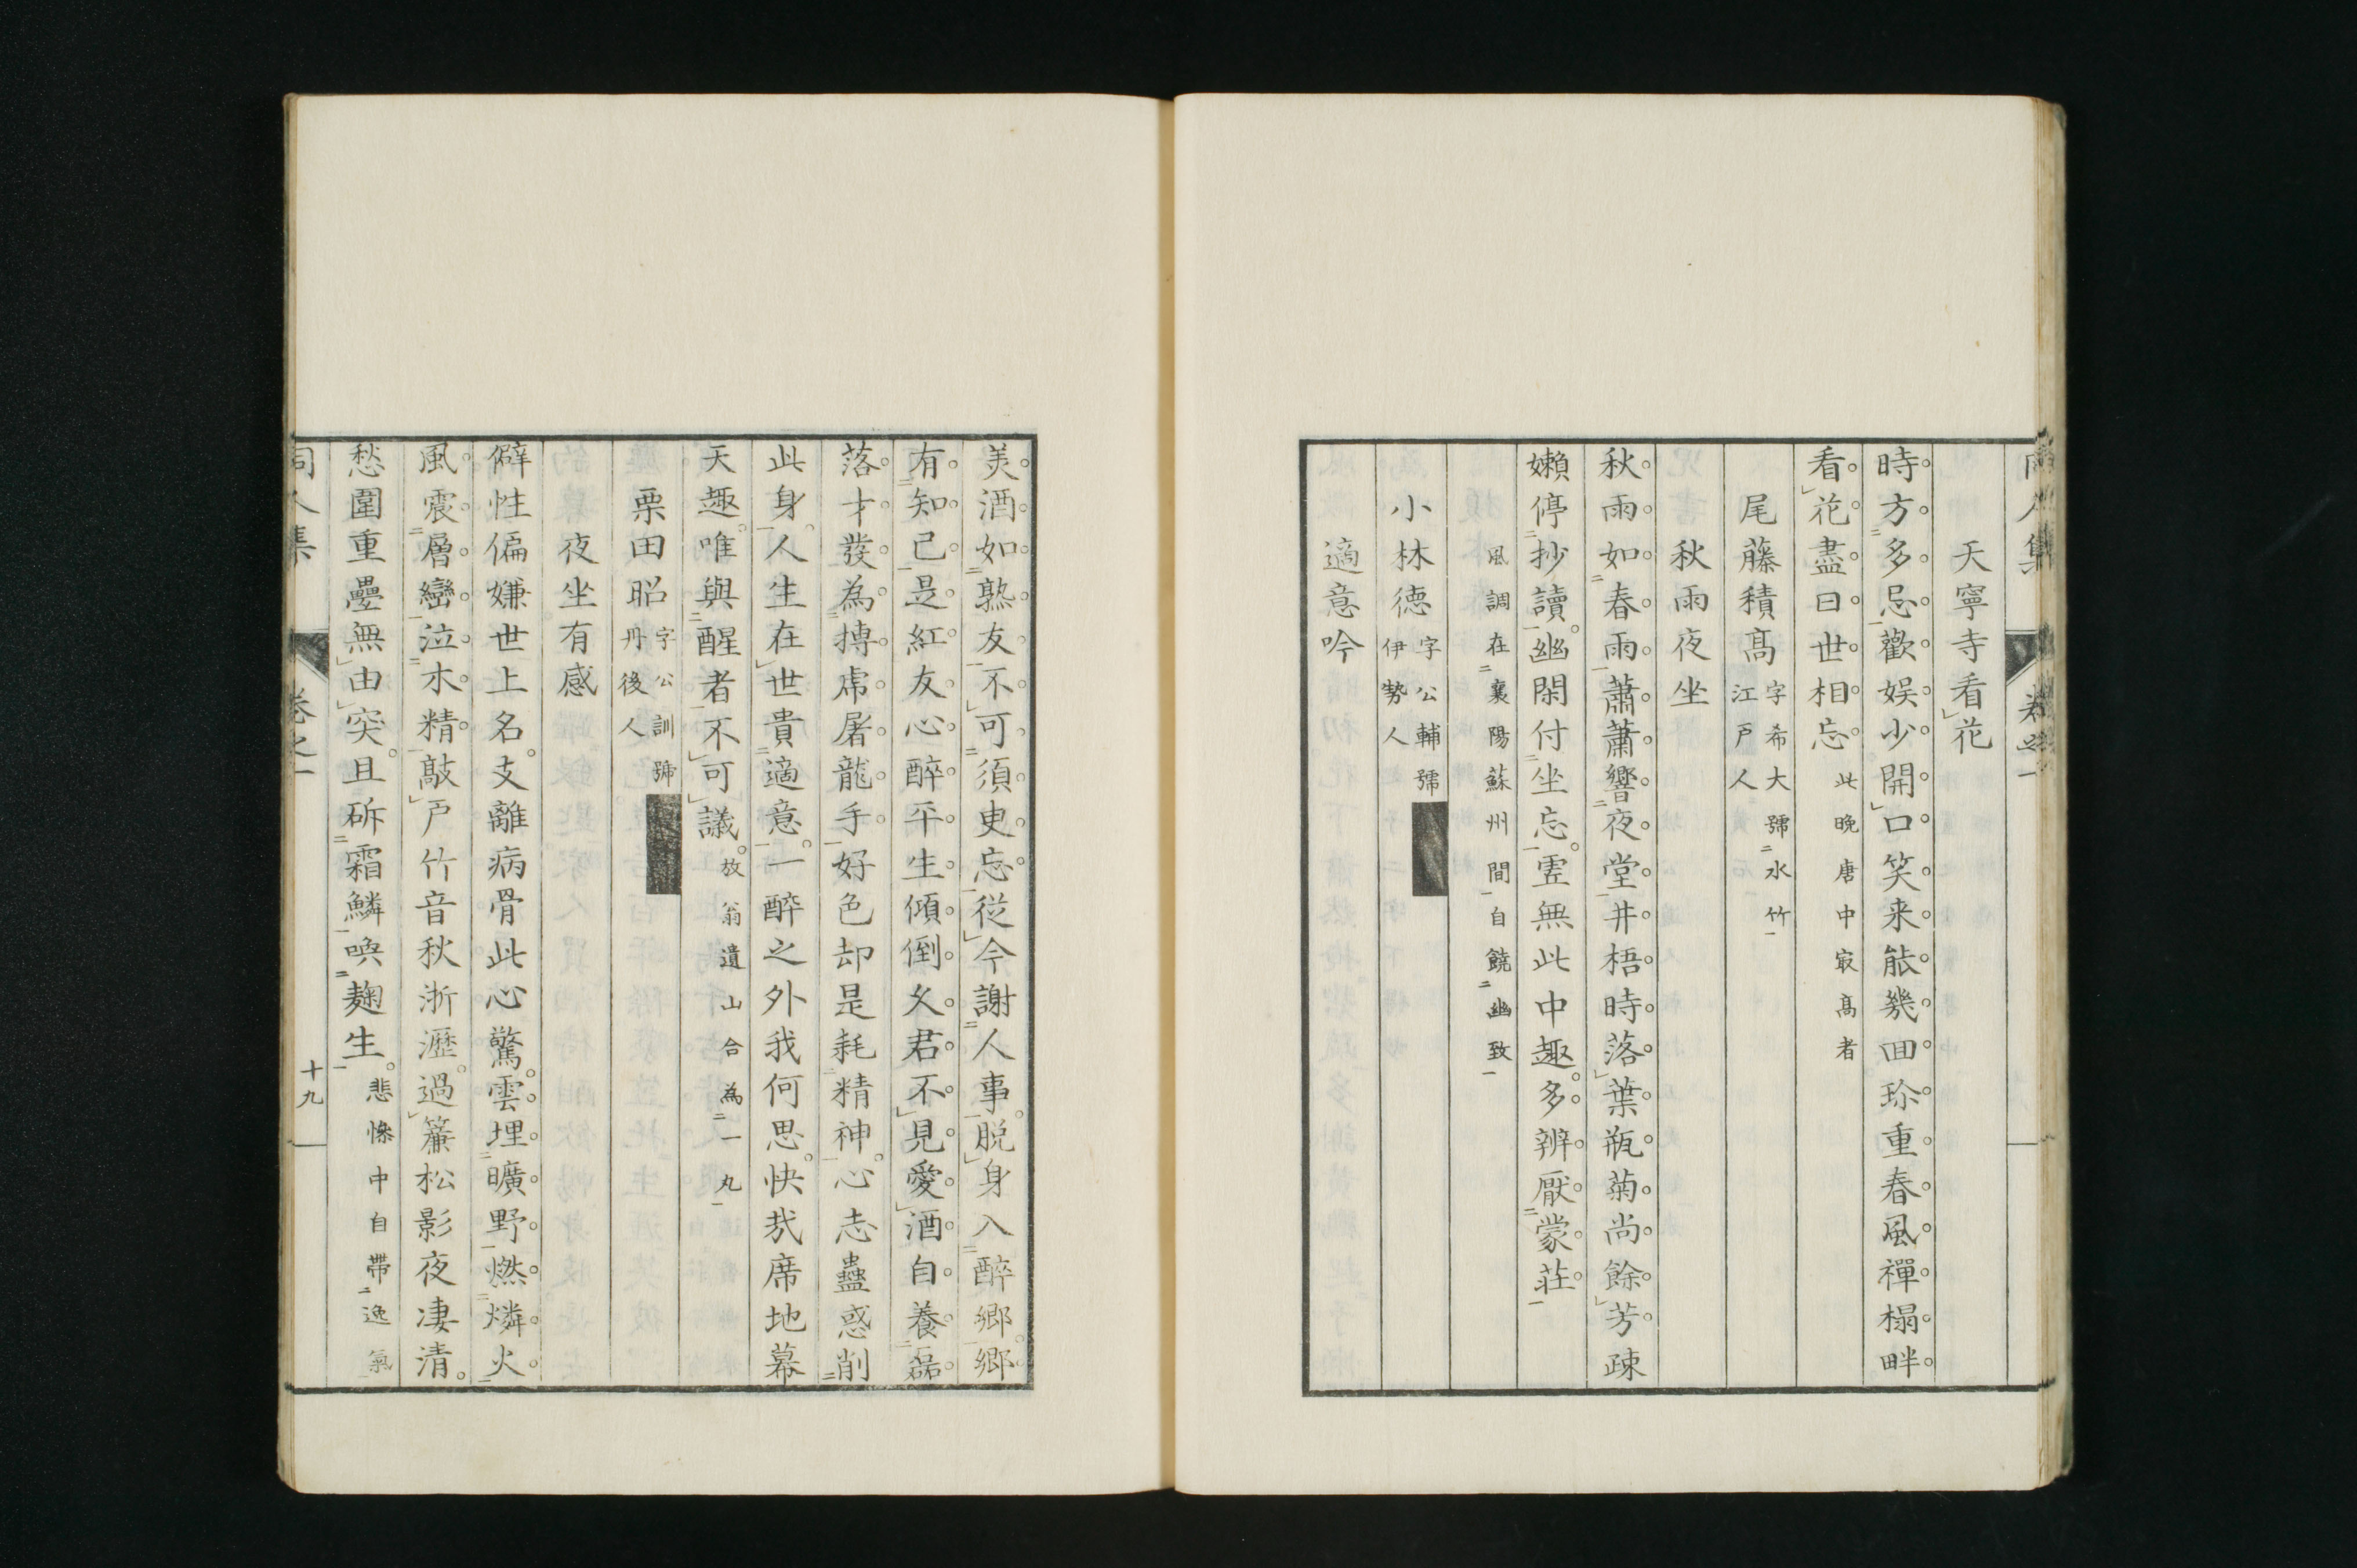 同人集 卷之一
天寧寺看花
時方多忌歡娱少開口笑来能幾回珎重春風禪榻畔
看花盡日世相忘 此晚唐中㝡髙者
尾藤積髙 字希大號水竹 江戸人
秋雨夜坐
秋雨如春雨蕭蕭響夜堂井梧時落葉瓶菊尚餘芳疎
嬾停抄讀幽閑付坐忘雲無此中趣多辨厭蒙莊
風調在襄陽蘇州間自饒幽致
小林德 字公輔號 伊勢人
適意吟
美酒如熟友不可須臾忘從今謝人事脱身入醉郷郷
有知己是紅友心醉平生傾倒久君不見愛酒自養磊
落才發為搏虎屠龍手好色却是耗精神心志蠱惑削
此身人生在世貴適意一醉之外我何思快哉席地幕
天趣唯與醒者不可議 放翁遺山合為一丸
栗田昭 字公訓號 丹後人
夜坐有感
僻性偏嫌世上名支離病骨此心驚雲埋曠野燃燐火
風震層巒泣木精敲戸竹音秋淅瀝過簾松影夜凄清
愁圍重疊無由突且斫霜鱗喚麹生 悲慘中自帶逸氣
同人集 卷之一 十九